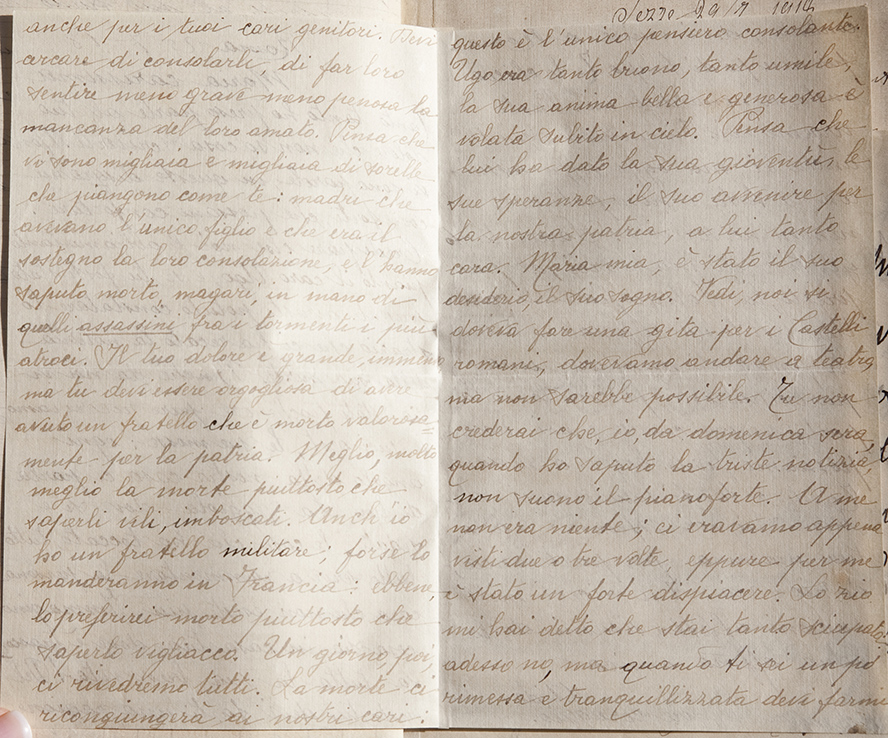 anche per i tuoi cari genitori. Devi
cercare di consolarli, di far loro
sentire meno grave meno penosa la
mancanza del loro amato. Pensa che
vi sono migliaia e migliaia di sorelle
che piangono come te: madri che
avevano l'unico figlio e che era il
sostegno la loro consolazione, e l'hanno
saputo morto, magari, in mano di
quelli assassini fra i tormenti i più
atroci. Il tuo dolore è grande, immenso
ma tu devi essere orgogliosa di avere
avuto un fratello che è morto valorosa=
mente per la patria. Meglio, molto
meglio la morte piuttosto che
saperli vili, imboscati. Anch'io
ho un fratello militare; forse lo
manderanno in Francia: ebbene,
lo preferirei morto piuttosto che
saperlo vigliacco. Un giorno, poi,
ci rivedremo tutti. La morte ci
ricongiungerà ai nostri cari:
1914
questo è l'unico pensiero consolante.
Ugo era tanto buono, tanto umile,
la sua anima bella e generosa è
volata subito in cielo. Pensa che
lui ha dato la sua gioventù, le
sue speranze, il suo avvenire per
la nostra patria, a lui tanto
cara. Maria mia, è stato il suo
desiderio, il suo sogno. Vedi, noi si
doveva fare una gita per i Castelli
romani, dovevamo andare a teatro
ma non sarebbe possibile. Tu non
crederai che, io, da domenica sera,
quando ho saputo la triste notizia
non suono il pianoforte. A me
non era niente; ci eravamo appena
visti due o tre volte, eppure per me
è stato un forte dispiacere. Lo zio
mi hai detto che stai tanto sciupata
adesso no, ma quando ti sei un pò
rimessa e tranquillizzata devi farmi